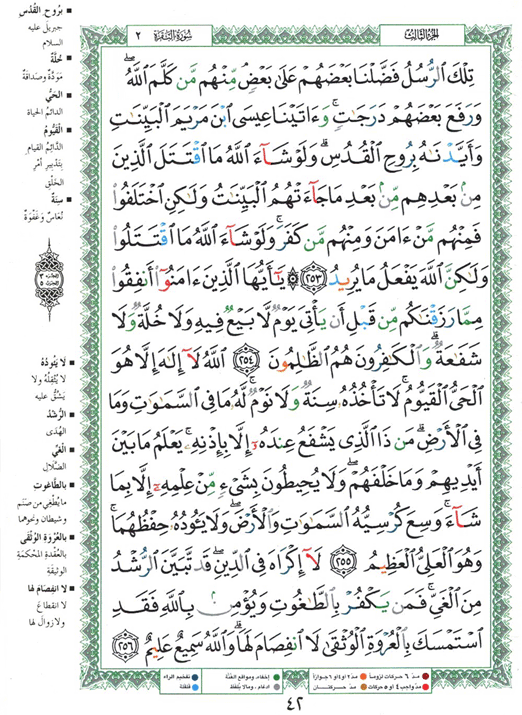 الجزء الثالث
سورة البقرة
٢
تِلْكَ ٱلرُّسُلُ فَضَّلْنَا بَعْضَهُمْ عَلَىٰ بَعْضٍ مِّنْهُم مَّن كَلَّمَ ٱللَّهُ
وَرَفَعَ بَعْضَهُمْ دَرَجَٰتٍ وَءَاتَيْنَا عِيسَى ٱبْنَ مَرْيَمَ ٱلْبَيِّنَٰتِ
وَأَيَّدْنَٰهُ بِرُوحِ ٱلْقُدُسِ وَلَوْ شَآءَ ٱللَّهُ مَا ٱقْتَتَلَ ٱلَّذِينَ
مِنۢ بَعْدِهِم مِّنۢ بَعْدِ مَا جَآءَتْهُمُ ٱلْبَيِّنَٰتُ وَلَٰكِنِ ٱخْتَلَفُوا۟
فَمِنْهُم مَّنْ ءَامَنَ وَمِنْهُم مَّن كَفَرَ وَلَوْ شَآءَ ٱللَّهُ مَا ٱقْتَتَلُوا۟
وَلَٰكِنَّ ٱللَّهَ يَفْعَلُ مَا يُرِيدُ ٢٥٣ يَٰٓأَيُّهَا ٱلَّذِينَ ءَامَنُوٓا۟ أَنفِقُوا۟
مِمَّا رَزَقْنَٰكُم مِّن قَبْلِ أَن يَأْتِىَ يَوْمٌ لَّا بَيْعٌ فِيهِ وَلَا خُلَّةٌ وَلَا
شَفَٰعَةٌ وَٱلْكَٰفِرُونَ هُمُ ٱلظَّٰلِمُونَ ٢٥٤ ٱللَّهُ لَآ إِلَٰهَ إِلَّا هُوَ
ٱلْحَىُّ ٱلْقَيُّومُ لَا تَأْخُذُهُۥ سِنَةٌ وَلَا نَوْمٌ لَّهُۥ مَا فِى ٱلسَّمَٰوَٰتِ وَمَا
فِى ٱلْأَرْضِ مَن ذَا ٱلَّذِى يَشْفَعُ عِندَهُۥٓ إِلَّا بِإِذْنِهِۦ يَعْلَمُ مَا بَيْنَ
أَيْدِيهِمْ وَمَا خَلْفَهُمْ وَلَا يُحِيطُونَ بِشَىْءٍ مِّنْ عِلْمِهِۦٓ إِلَّا بِمَا
شَآءَ وَسِعَ كُرْسِيُّهُ ٱلسَّمَٰوَٰتِ وَٱلْأَرْضَ وَلَا يَـُٔودُهُۥ حِفْظُهُمَا
وَهُوَ ٱلْعَلِىُّ ٱلْعَظِيمُ ٢٥٥ لَآ إِكْرَاهَ فِى ٱلدِّينِ قَد تَّبَيَّنَ ٱلرُّشْدُ
مِنَ ٱلْغَىِّ فَمَن يَكْفُرْ بِٱلطَّٰغُوتِ وَيُؤْمِنۢ بِٱللَّهِ فَقَدِ
ٱسْتَمْسَكَ بِٱلْعُرْوَةِ ٱلْوُثْقَىٰ لَا ٱنفِصَامَ لَهَا وَٱللَّهُ سَمِيعٌ عَلِيمٌ ٢٥٦
■ بِرُوحِ القُدُسِ
جبريلَ عليه
السلام
■ خُلَّةٌ
مَوَدَّةٌ وصداقةٌ
■ الحَيُّ
الدائمُ الحياة
■ القَيُّومُ
الدَّائمُ القيامِ
بتدبيرِ أمْرِ
الخَلْقِ
■ سِنَةٌ
نُعَاسٌ وغَفْوَةٌ
■ لا يَئُودُهُ
لا يُثْقِلُهُ ولا
يَشُقُّ عليه
■ الرُّشْدُ
الهُدَى
■ الغَيِّ
الضَّلالِ
■ بالطَّاغوتِ
ما يُطْغِي من صَنَمٍ
وشيطانٍ ونحوِهما
■ بالعُرْوَةِ الوُثْقَى
بالعُقْدَةِ المُحْكَمَةِ
الوثيقَةِ
■ لا انفِصَامَ لها
لا انقطاعَ
ولا زوالَ لها
مدّ ٦ حركات لزوماً مدّ ٢ أو ٤ أو ٦ جوازاً إخفاء، ومواقع الغُنَّة تفخيم الراء
مدّ واجب ٤ أو ٥ حركات مدّ حركتان إدغام، وما لا يُلفَظ قلقلة
٤٢